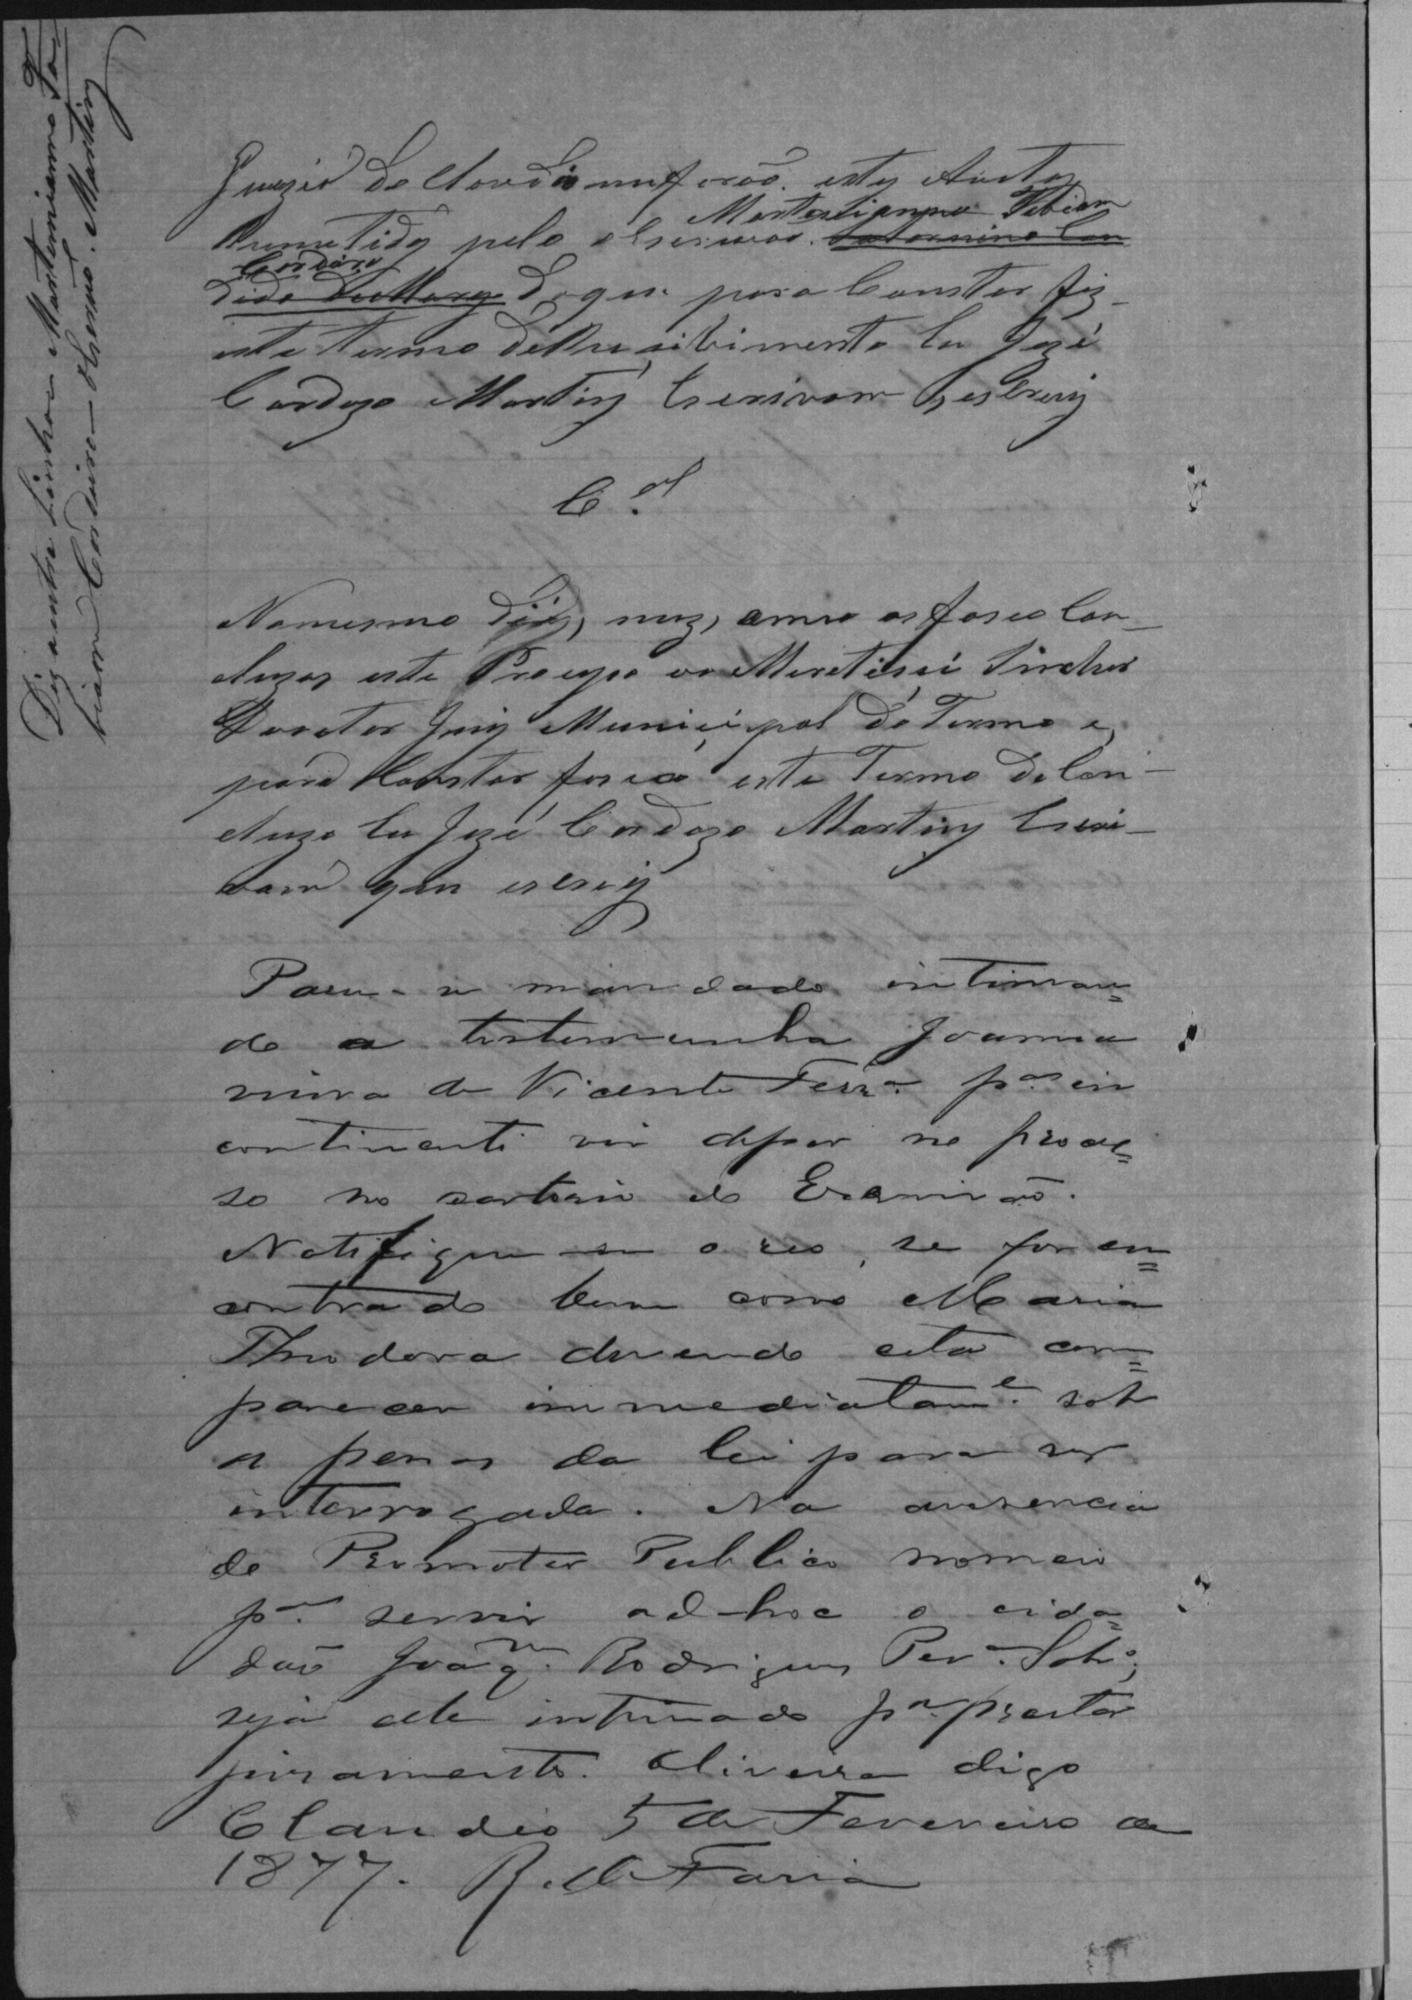 Digo entre linhas Martiniano Fa
biam Cordeiro. Escrivão. Martins
Juizo do Claudio me forão estes Autos
Remetidos pelo Escrivão Saturnino Can
Martiniano Fabiam
dido Cordeiro do que para Constar fiz
este termo de Recibimento Eu Jozé
Cardozo Martins Escrivam q̃ escrevy
C.ᵒˢ
No mesmo dia, mez, e anno os faso Con-
cluzos este Proceço ao Meretisimo Sinhor
Doutor Juiz Municipal do Termo e,
para Constar faso este Termo de Con-
cluzo Eu Jozé Cardozo Martins Escri-
vam que escrevy
Passe-se mandado intiman=
do a testemunha Joanna
viuva de Vicente Ferrª. pª. in
continenti vir depor no proces=
so no cartorio do Escrivão.
Notifique-se o reo, se for en=
contrado bem como Maria
Theodora devendo esta com=
parecer immediatamᵉ. sob
as penas da lei para ser
interrogada. Na ausencia
do Promotor Publico nomeio
pª. servir ad-hoc o cida=
dão Joaqᵐ. Rodrigues Perª. Sobº.,
seja elle intimado pª. prestar
juramento. Oliveira digo
Claudio 5 de Fevereiro de
1877. R. de Faria